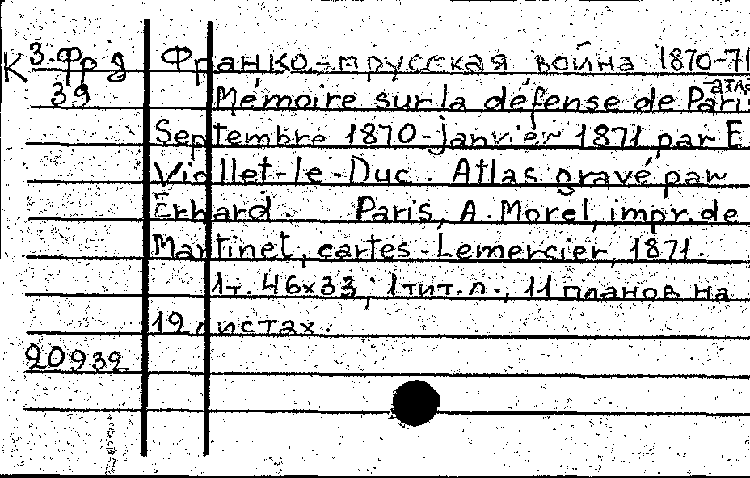 К 3.Фр д Франко-прусская война 1870-71
39 атлас
Mémoire sur la défense de Paris
Septembre 1870-janvier 1871 par E
Viollet-le-Duc. Atlas gravé par
Erhard. Paris, A. Morel, impr. de
Martinet, cartes-Lemercier, 1871.
1т. 46х33; 1 тит. л., 11 планов на
19 листах.
20932